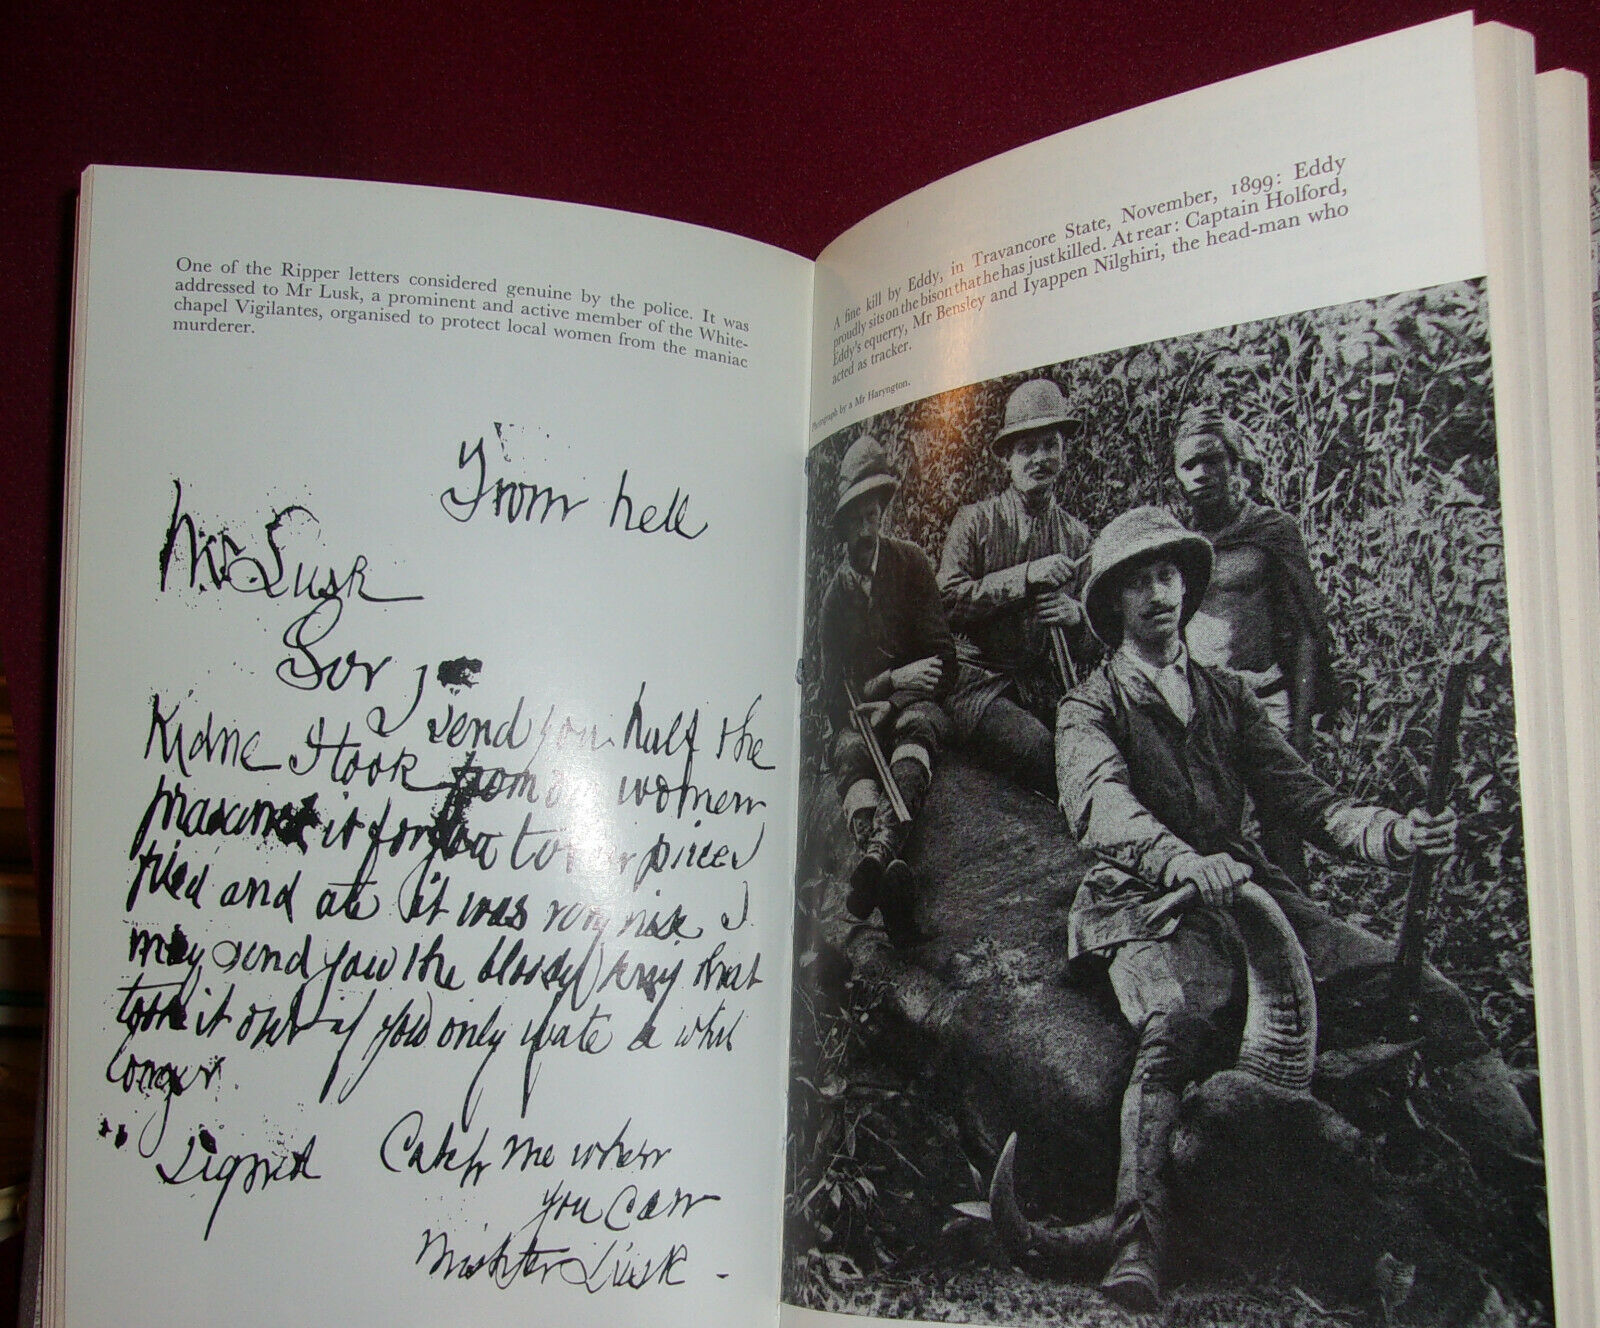 One of the Ripper letters considered genuine by the police. It was
addressed to Mr Lusk, a prominent and active member of the White-
chapel Vigilantes, organised to protect local women from the maniac
murderer.
From hell
Mr Lusk
Sor
I send you half the
Kidne I took from one women
prasarved it for you tother piece I
fried and ate it was very nise I
may send you the bloody knif that
took it out if you only wate a whil
longer.
Signed Catch me when
you Can
Mishter Lusk -
A fine kill by Eddy, in Travancore State, November, 1899: Eddy
proudly sits on the bison that he has just killed. At rear: Captain Holford,
Eddy's equerry, Mr Bensley and Iyappen Nilghiri, the head-man who
acted as tracker.
Photograph by a Mr Haryngton.